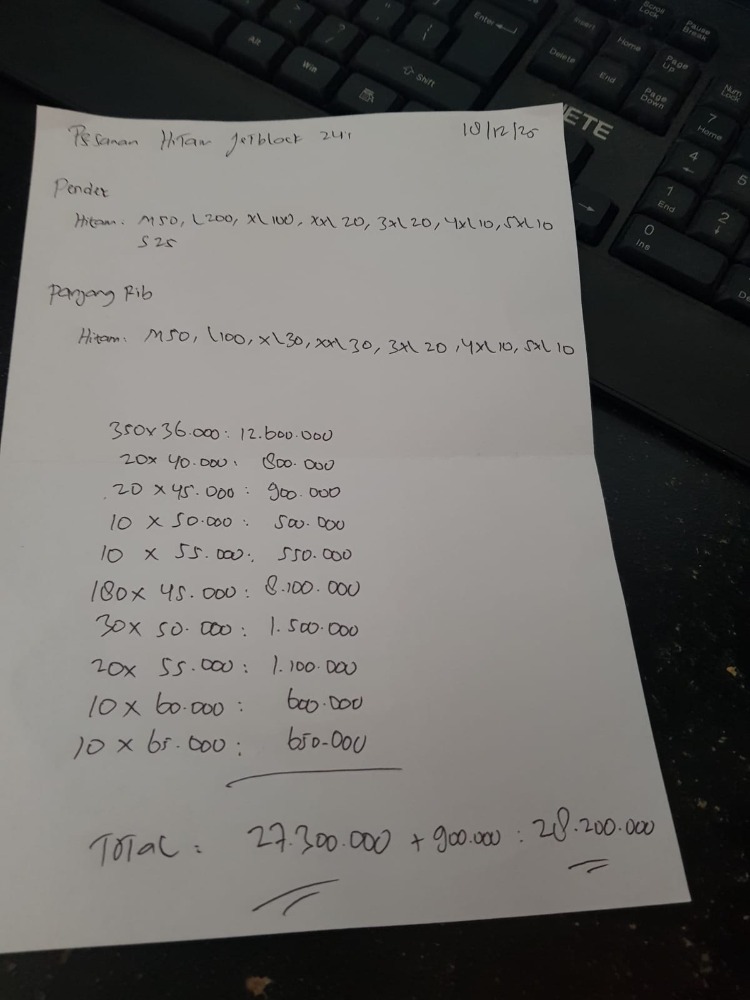 Scroll Lock
Pause Break
Enter
Insert
Home
Page Up
Alt
Win
Shift
Delete
End
Page Down
Num Lock
7 Home
4
5
1 End
2
0 Ins
De
ETE
Pesanan Hitam Jetblack 24s 18/12/25
Pendek
Hitam: M50, L200, XL100, XXL 20, 3XL 20, 4XL10, 5XL10
S 25
Panjang Rib
Hitam: M50, L100, XL30, XXL30, 3XL 20, 4XL10, 5XL 10
350x36.000: 12.600.000
20x 40.000: 800.000
20 x 45.000: 900.000
10 x 50.000: 500.000
10 x 55.000: 550.000
180x 45.000: 8.100.000
30x 50.000: 1.500.000
20x 55.000: 1.100.000
10 x 60.000: 600.000
10 x 65.000: 650.000
TOTAL: 27.300.000 + 900.000: 28.200.000